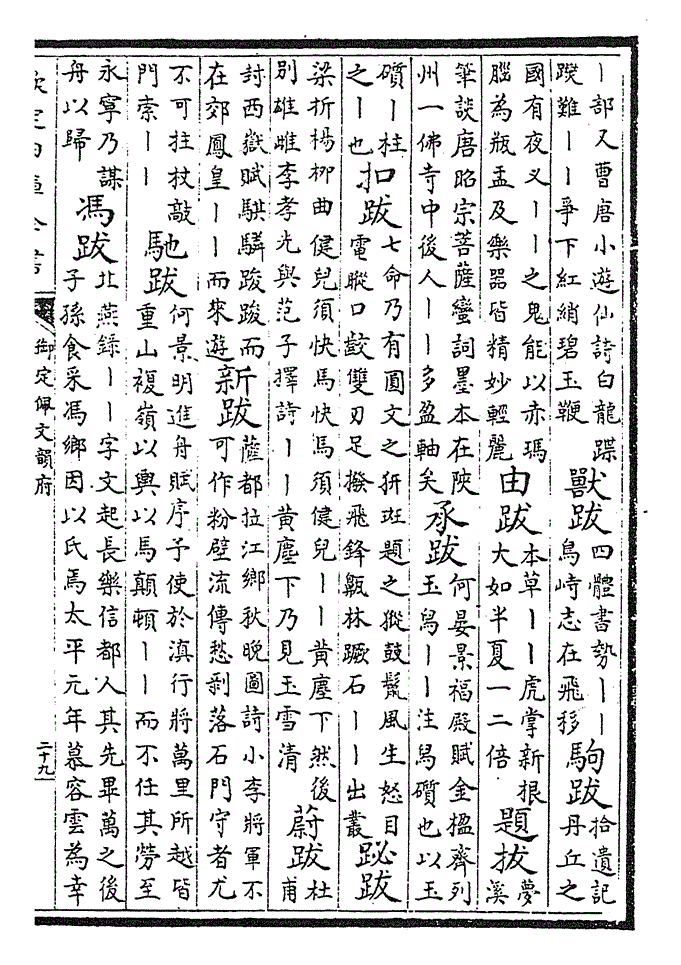 丨部又曹唐小遊仙詩白龍蹀
蹤難丨丨爭下紅綃碧玉鞭
獸跋
四體書勢丨丨
鳥峙志在飛移
駒跋
拾遺記
丹丘之
國有夜义丨丨之鬼能以赤瑪
腦為瓶盂及樂器皆精妙輕麗
由跋
本草丨丨虎掌新根
大如半夏一二倍
題拔
夢
溪
筆談唐昭宗菩薩蠻詞墨本在陝
州一佛寺中後人丨丨多盈軸矣
承跋
何晏景福殿賦金楹齊列
玉舄丨丨注舄礩也以玉
礩丨柱
之丨也
扣跋
七命乃有圓文之豜斑題之猔鼓鬣風生怒目
電瞛口齩雙刃足撥飛鋒甎林蹶石丨丨出叢
䟆跋
梁折楊柳曲健兒須快馬快馬須健兒丨丨黃塵下然後
別雄雌李孝光與范子擇詩丨丨黃塵下乃見玉雪清
蔚跋
杜
甫
封西嶽賦騏驎踆踆而
在郊鳳皇丨丨而來遊
新跋
薩都拉江鄉秋晚圖詩小李將軍不
可作粉壁流傳愁剝落石門守者尤
不可拄杖敲
門索丨丨
馳跋
何景明進舟賦序予使於滇行將萬里所越皆
重山複嶺以輿以馬顛頓丨丨而不任其勞至
永寧乃謀
舟以歸
馮跋
北燕錄丨丨字文起長樂信都人其先畢萬之後
子孫食采馮鄉因以氏焉太平元年慕容雲為幸
欽定四庫全書
御定佩文韻府
二十九